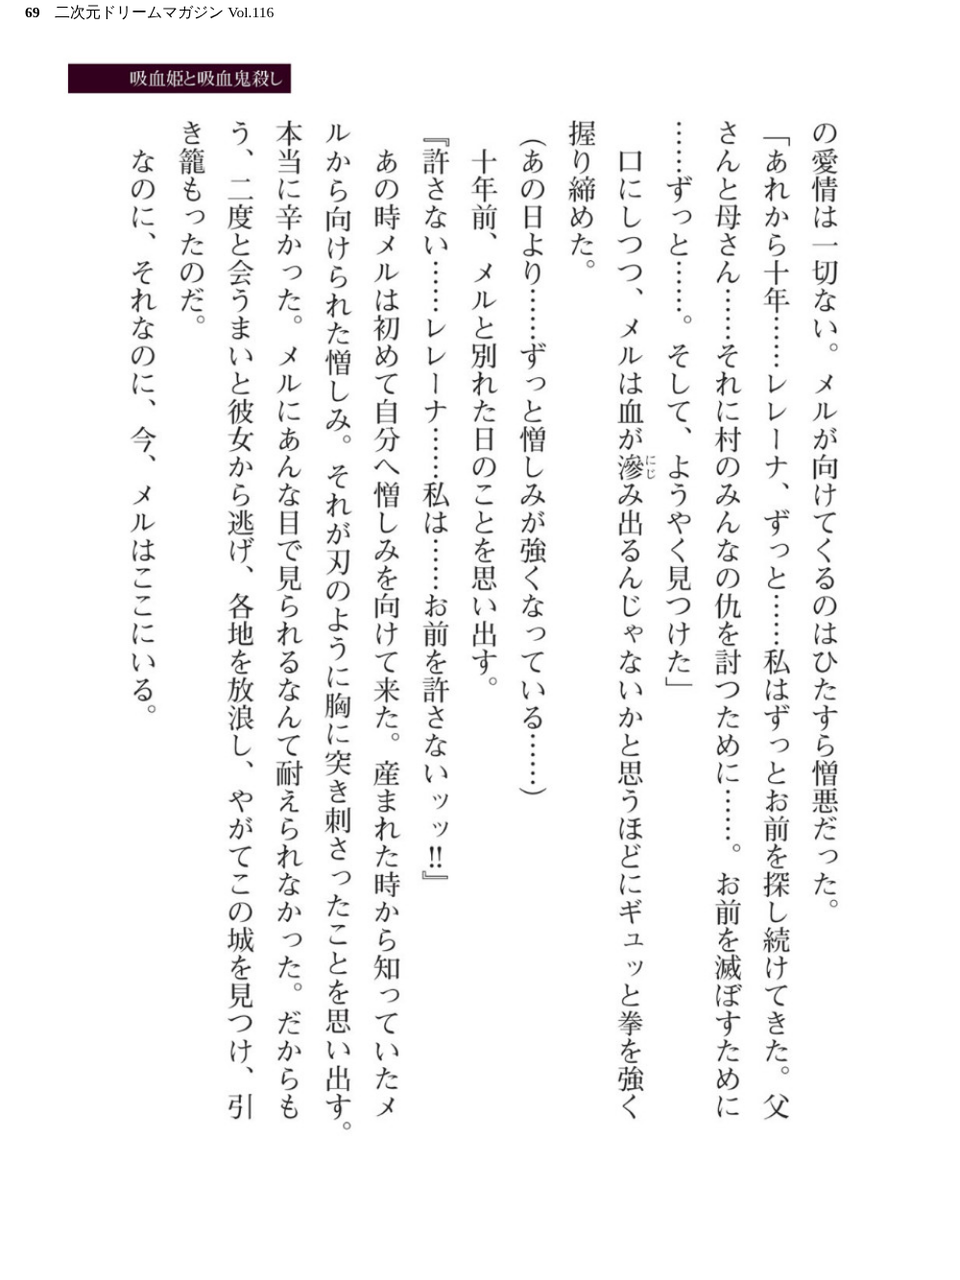 69 二次元ドリームマガジン Vol.116
吸血姫と吸血鬼殺し
の愛情は一切ない。メルが向けてくるのはひたすら憎悪だった。
「あれから十年……レレーナ、ずっと……私はずっとお前を探し続けてきた。父
さんと母さん……それに村のみんなの仇を討つために……。お前を滅ぼすために
……ずっと……。そして、ようやく見つけた」
　口にしつつ、メルは血が滲み出るんじゃないかと思うほどにギュッと拳を強く
にじ
握り締めた。
（あの日より……ずっと憎しみが強くなっている……）
　十年前、メルと別れた日のことを思い出す。
『許さない……レレーナ……私は……お前を許さないッッ!!』
　あの時メルは初めて自分へ憎しみを向けて来た。産まれた時から知っていたメ
ルから向けられた憎しみ。それが刃のように胸に突き刺さったことを思い出す。
本当に辛かった。メルにあんな目で見られるなんて耐えられなかった。だからも
う、二度と会うまいと彼女から逃げ、各地を放浪し、やがてこの城を見つけ、引
き籠もったのだ。
　なのに、それなのに、今、メルはここにいる。